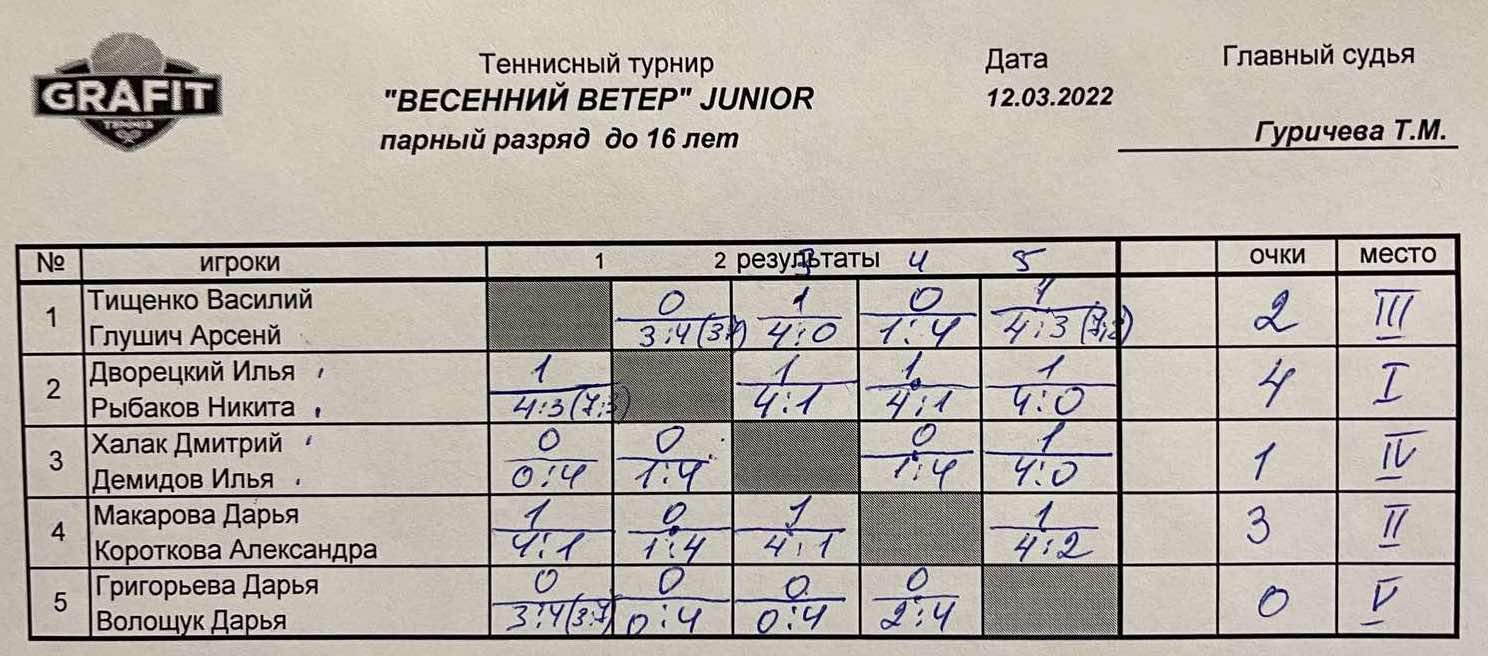 GRAFIT
TENNIS
Теннисный турнир
"ВЕСЕННИЙ ВЕТЕР" JUNIOR
парный разряд до 16 лет
Дата
12.03.2022
Главный судья
Гуричева Т.М.
№ игроки 1 2 результаты 3 4 5 очки место
1 Тищенко Василий 0 1 0 1 2 III
Глушич Арсенй 3:4(3:7) 4:0 1:4 4:3
2 Дворецкий Илья 1 1 1 1 4 I
Рыбаков Никита 4:3(7:3) 4:1 4:1 4:0
3 Халак Дмитрий 0 0 0 1 1 IV
Демидов Илья 0:4 1:4 1:4 4:0
4 Макарова Дарья 1 0 1 1 3 II
Короткова Александра 4:1 1:4 4:1 4:2
5 Григорьева Дарья 0 0 0 0 0 V
Волощук Дарья 3:4(3:7) 0:4 0:4 2:4